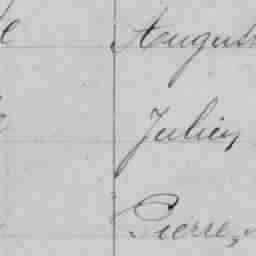 e August
e Julien
Pierre,